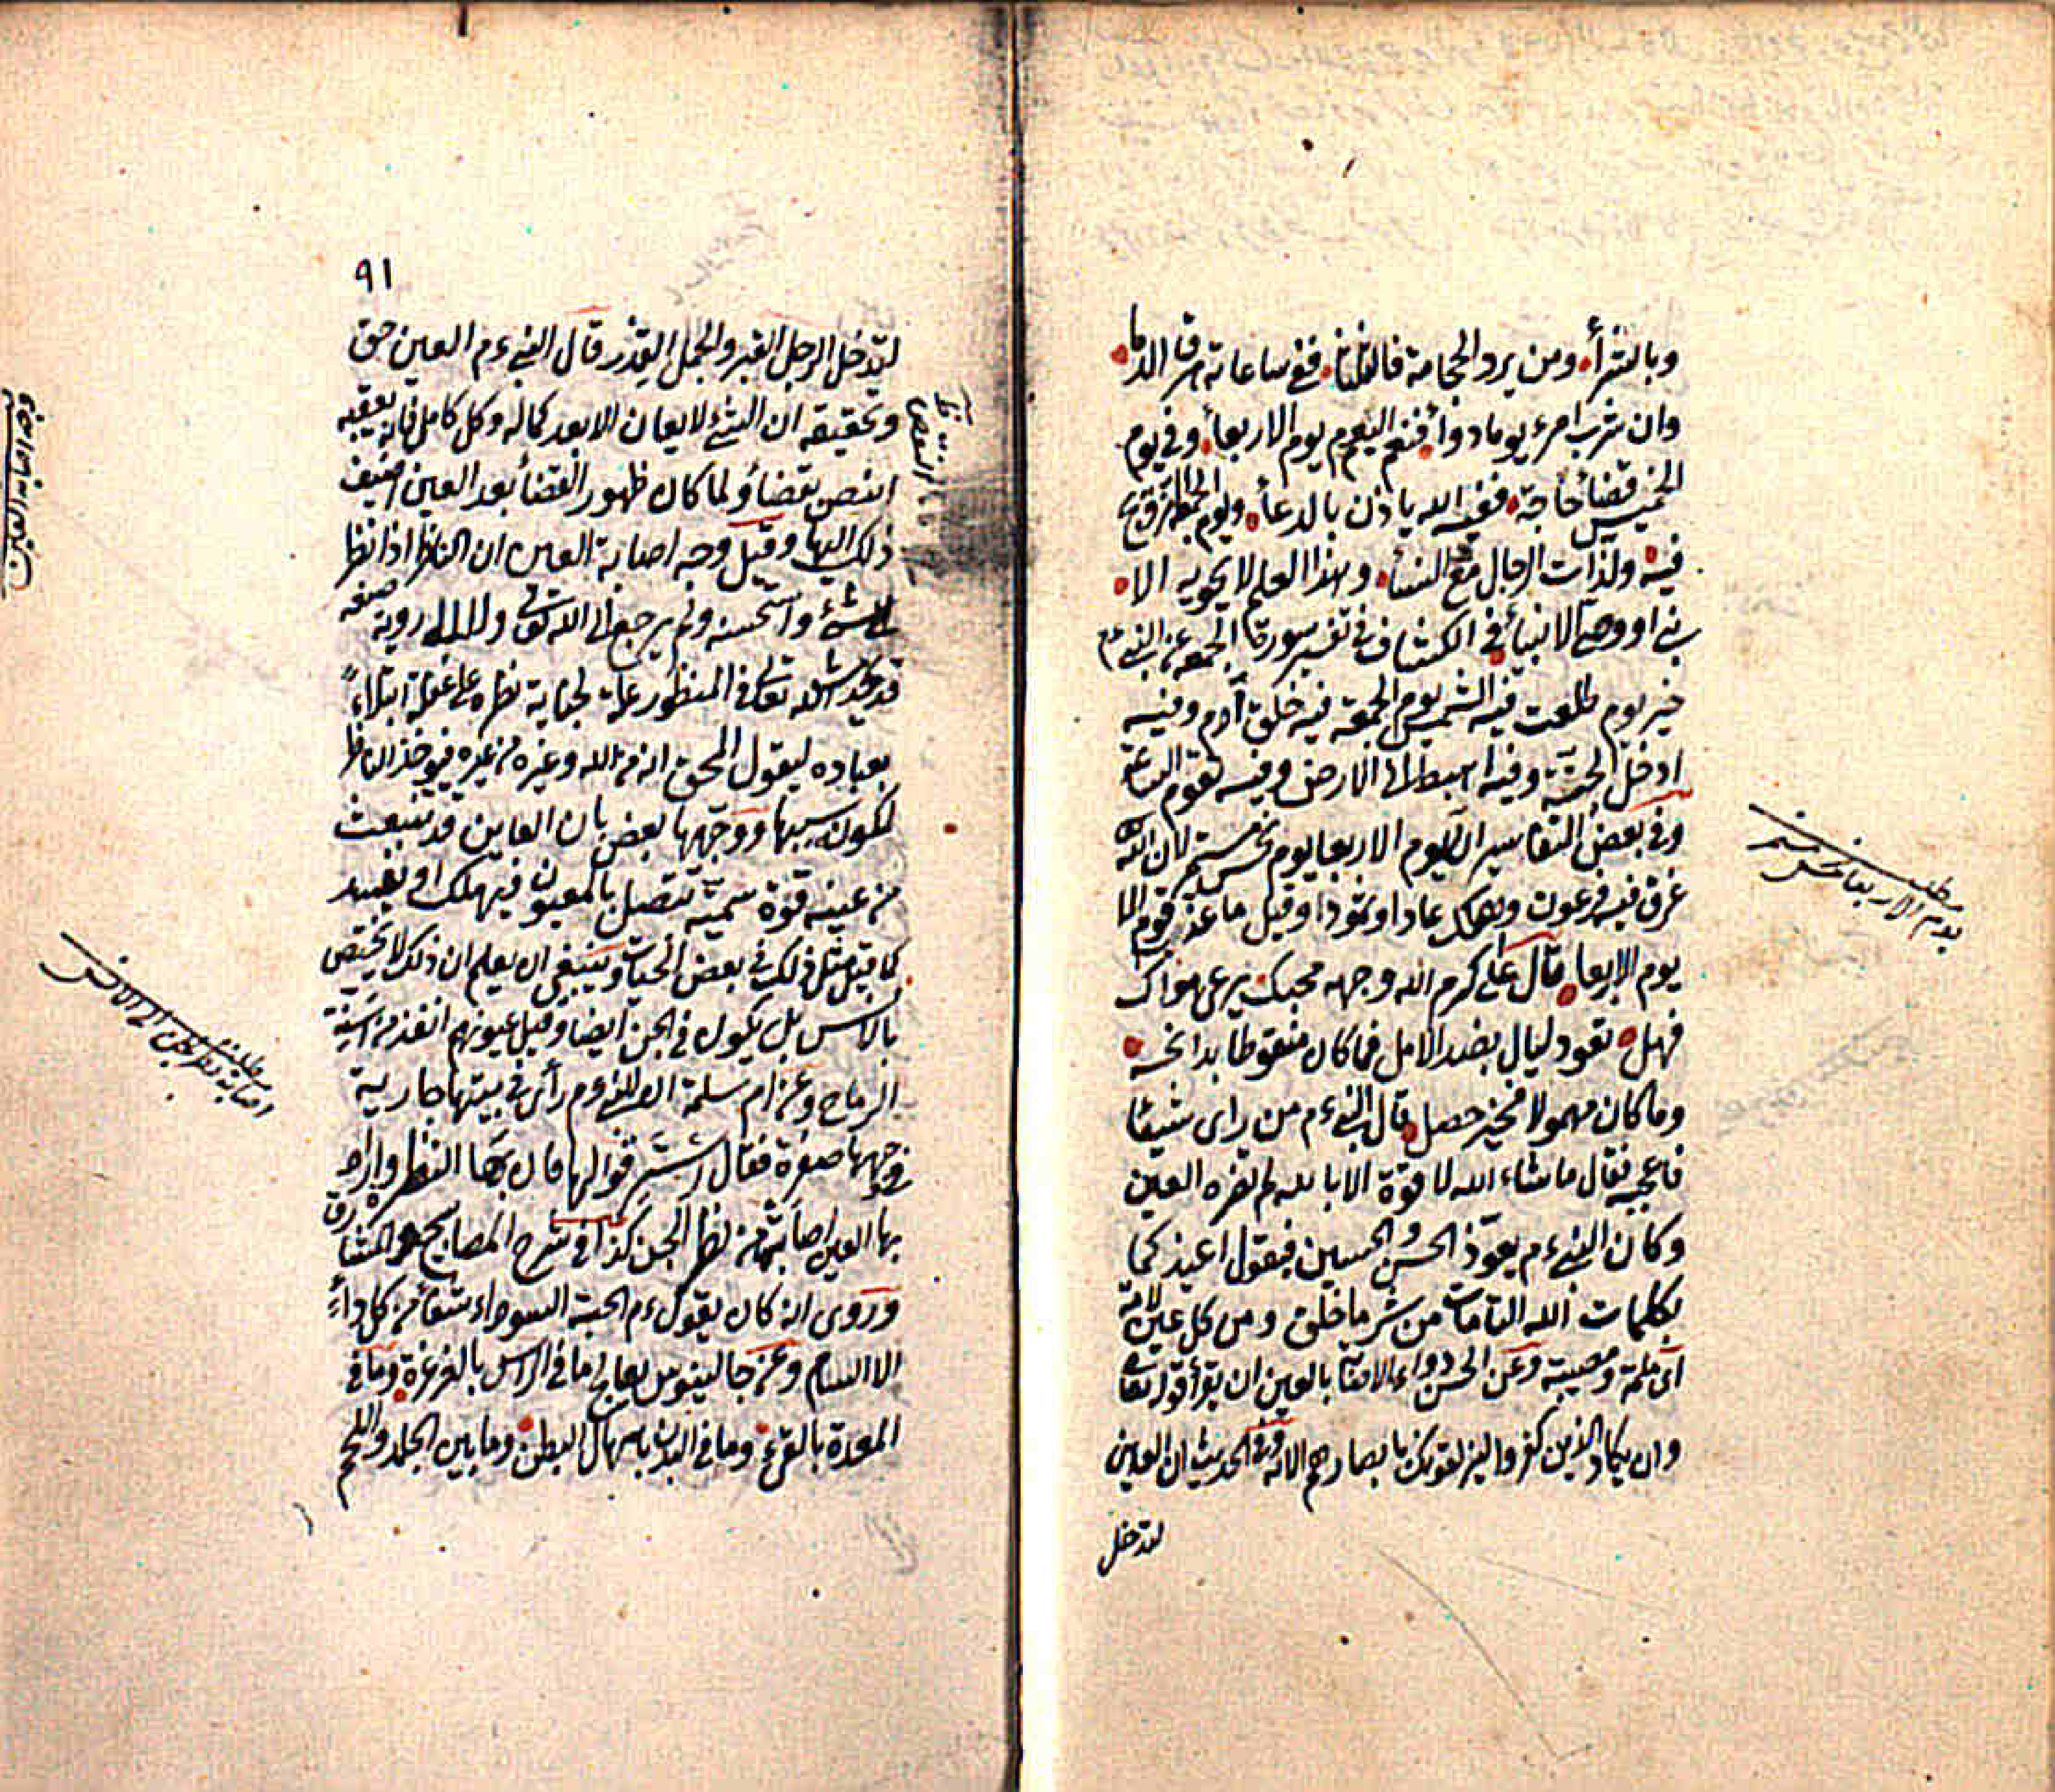 وبالثرأ ومن يرد الحجامة فالثلثا ففى ساعاته هرق الدما
وان شرب امرء يوما دوأ فنعم اليوم يوم الاربعأ وفى يوم
الخميس قضأ حاجة ففيه الله ياذن بالدعأ ويوم الجمعة تزويج
فيه ولذات الرجال مع النسأ وهذا العلم لا يحويه الا
نبى او وصى الانبيأ فى الكشاف فى تفسير سورة الجمعة عن النبى ع م
خير يوم طلعت فيه الشمس يوم الجمعة فيه خلق آدم وفيه
ادخل الجنة وفيه اهبط الى الارض وفيه تقوم الساعة
وفى بعض التفاسير ان اليوم الاربعا يوم نحس مستمر لان الله
غرق فيه فرعون واهلك عادا وثمودا وقيل ما عذب قوم الا
يوم الاربعا قال على كرم الله وجهه محبك يرعى هواك
فهل تعود ليال بضد الامل فما كان منقوطا بدا نحسه
وما كان مهمولا فخير حصل قال النبى ع م من راى شيئا
فاعجبه فقال ما شاء الله لا قوة الا بالله لم تضره العين
وكان النبى ع م يعوّذ الحسن والحسين فيقول اعيذكما
بكلمات الله التامات من شر ما خلق ومن كل عين لامة
اى ملمة ومصيبة وعن الحسن دواء الاصابة بالعين ان يقرأ قوله تعالى
وان يكاد الذين كفروا ليزلقونك بابصارهم الاية وفى الحديث ان العين
لتدخل
مطلب
يوم الاربعا نحس مستمر
٩١
لتدخل الرجل القبر والجمل القدر قال النبى ع م العين حق
وتحقيقه ان الشئ لا يعان الا بعد كماله وكل كامل فانه يعقبه
النقص بقضأ ولما كان ظهور القضأ بعد العين اضيف
ذلك اليها وقيل وجه اصابة العين ان الناظر اذا نظر
الى شئ واستحسنه ولم يرجع الى الله تعالى والى روية صنعه
قد يحدث الله تعالى فى المنظور علة لجناية نظره على غفلة ابتلاءً
بعباده ليقول المحق انه من الله وغيره من غيره فيوخذ الناظر
لكونه سببها ووجّهها بعض بان العاين قد ينبعث
من عينه قوة سمّية تتصل بالمعيون فيهلك او يفسد
كما قيل مثل ذلك فى بعض الحيات وينبغى ان يعلم ان ذلك لا يختص
بالانس بل يكون فى الجن ايضا وقيل عيونهم انفذ من اسنة
الرماح وعن ام سلمة ان النبى ع م رأى فى بيتها جارية
فى وجهها صفرة فقال استرقوا لها فان بها النظر واراد
بها العين اصابتها من نظر الجن كذا فى شرح المصابيح المشارق
وروى انه كان يقول ع م الحبة السوداء شفأ من كل دأ
الا السام وعن جالينوس يعالج ما فى الراس بالغرغرة وما فى
المعدة بالقئ وما فى البدن باسهال البطن وما بين الجلد واللحم
مطلب
اصابة نظر الجن الى الانس